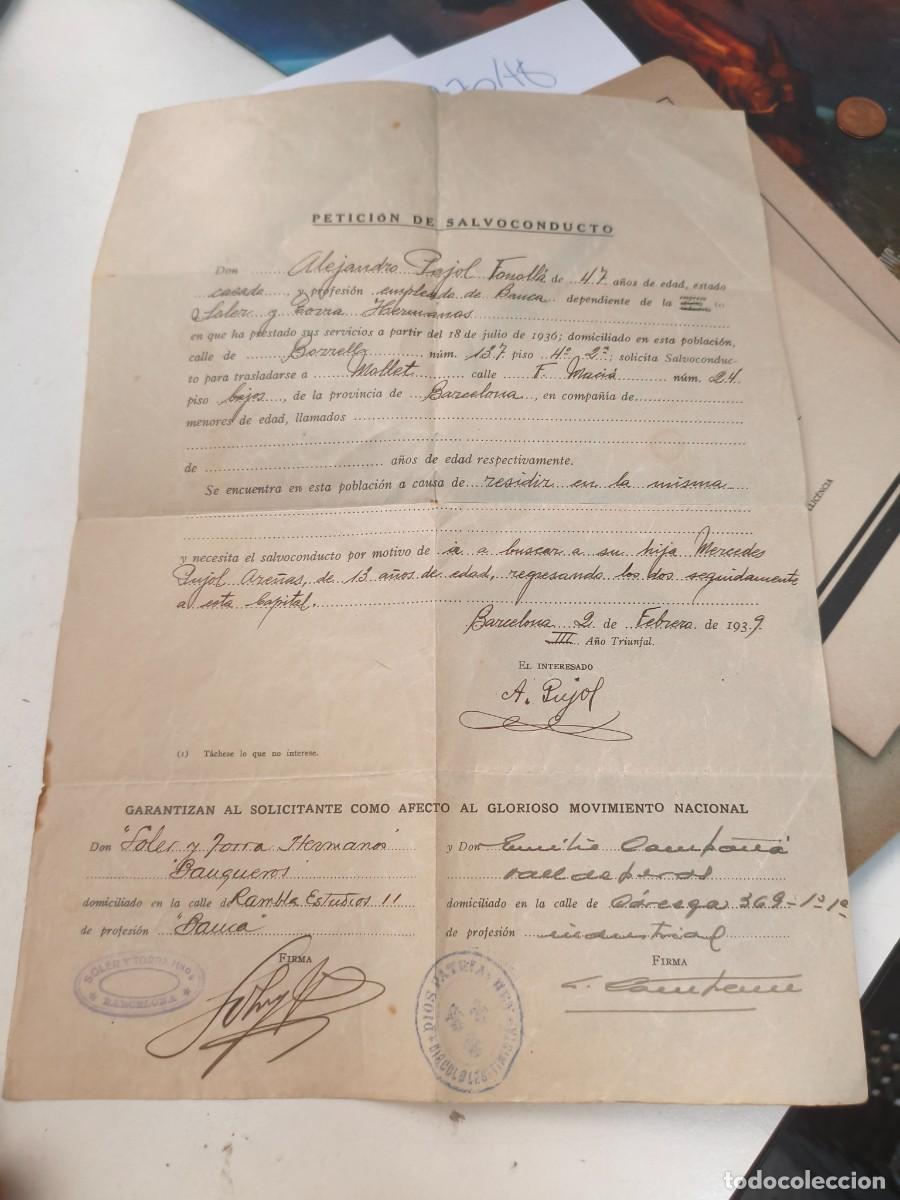 PETICIÓN DE SALVOCONDUCTO
Don Alejandro Pujol Fonollá de 47 años de edad, estado
casado y profesión empleado de Banca dependiente de la empresa (1)
Soler y Torra Hermanos
en que ha prestado sus servicios a partir del 18 de julio de 1936; domiciliado en esta población,
calle de Borrell núm. 137 piso 4º 2ª; solicita Salvoconduc-
to para trasladarse a Mollet calle F. Maciá núm. 24
piso bajos, de la provincia de Barcelona, en compañía de
menores de edad, llamados
de años de edad respectivamente.
Se encuentra en esta población a causa de residir en la misma
y necesita el salvoconducto por motivo de ir a buscar a su hija Mercedes
Pujol Areñas, de 13 años de edad, regresando los dos seguidamente
a esta Capital.
Barcelona 2 de Febrero de 1939
III Año Triunfal.
EL INTERESADO
A. Pujol
(1) Táchese lo que no interese.
GARANTIZAN AL SOLICITANTE COMO AFECTO AL GLORIOSO MOVIMIENTO NACIONAL
Don "Soler y Torra Hermanos"
"Banqueros"
domiciliado en la calle de Rambla Estudios 11
de profesión "Banca"
FIRMA
SOLER Y TORRA HNOS
BARCELONA
y Don Emilio Campañá
Valldeperas
domiciliado en la calle de Córcega 369-1º 1ª
de profesión industrial
FIRMA
DIOS PATRIA REY
CIRCULO LEGITIMISTA
LICENCIA
todocoleccion